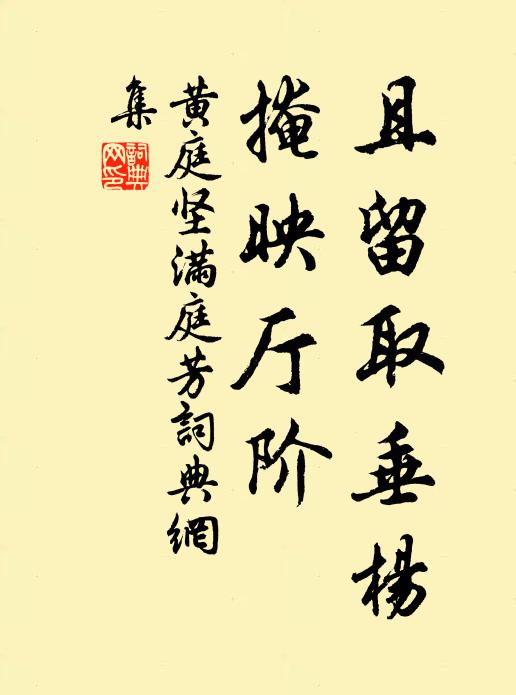 且留取垂楊
掩映厅阶
黄庭坚满庭芳詞典網
集
詞典
网印